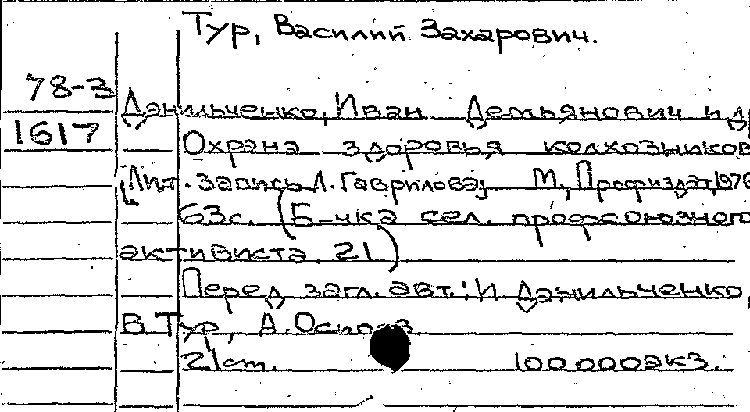 Тур, Василий Захарович.
78-3 Данильченко, Иван Демьянович и др
1617 Охрана здоровья колхозников
(Лит. запись Л. Гаврилова; М., Профиздат, 1978
63с. (Б-чка сел. профсоюзного
активиста. 21)
Перед загл. авт.: И. Данильченко,
В. Тур, А.
21 cm. 100000экз.